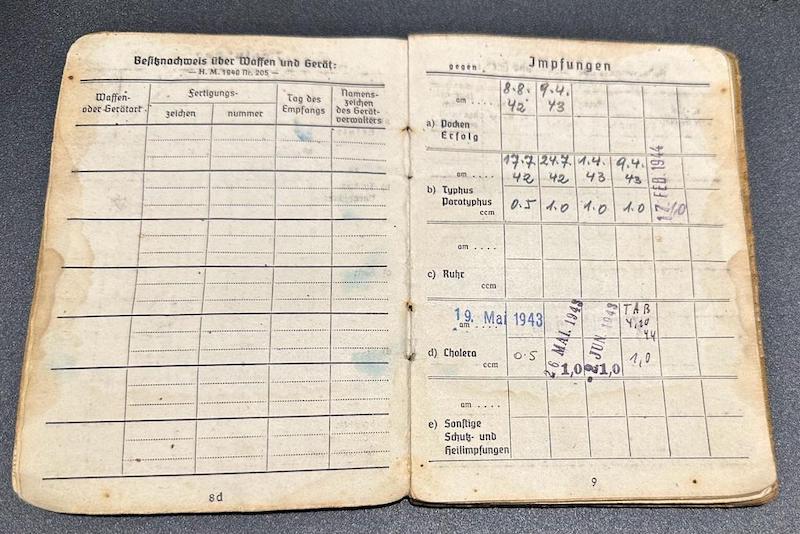 Besitznachweis über Waffen und Gerät:
— H. M. 1940 Nr. 205 —
Waffen-
oder Gerätart
Fertigungs-
zeichen
nummer
Tag des
Empfangs
Namens-
zeichen
des Gerät-
verwalters
8d
gegen
Impfungen
8.8. 9.4.
am .... 42 43
a) Pocken
Erfolg
17.7. 24.7. 1.4. 9.4.
am .... 42 42 43 43
17. FEB. 1944
b) Typhus
Paratyphus
ccm 0.5 1.0 1.0 1.0 1,0
am ....
c) Ruhr
ccm
19. Mai 1943
am
26 MAI. 1943
2 JUN. 1943
TAB
4.10
44
d) Cholera
ccm 0.5 1,0 1,0 1,0
am ....
e) Sonstige
Schutz- und
Heilimpfungen
9